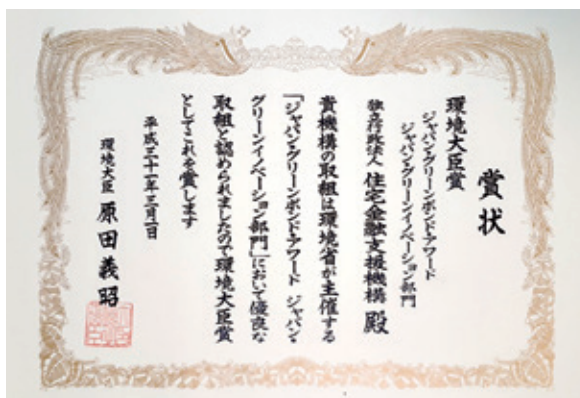 賞状
環境大臣賞
ジャパン・グリーンボンドアワード
ジャパン・グリーンイノベーション部門
独立行政法人 住宅金融支援機構 殿
貴機構の取組は環境省が主催する
「ジャパン・グリーンボンドアワード ジャパン・
グリーンイノベーション部門」において優良な
取組と認められましたので環境大臣賞
としてこれを賞します
平成三十一年三月一日
環境大臣 原田義昭